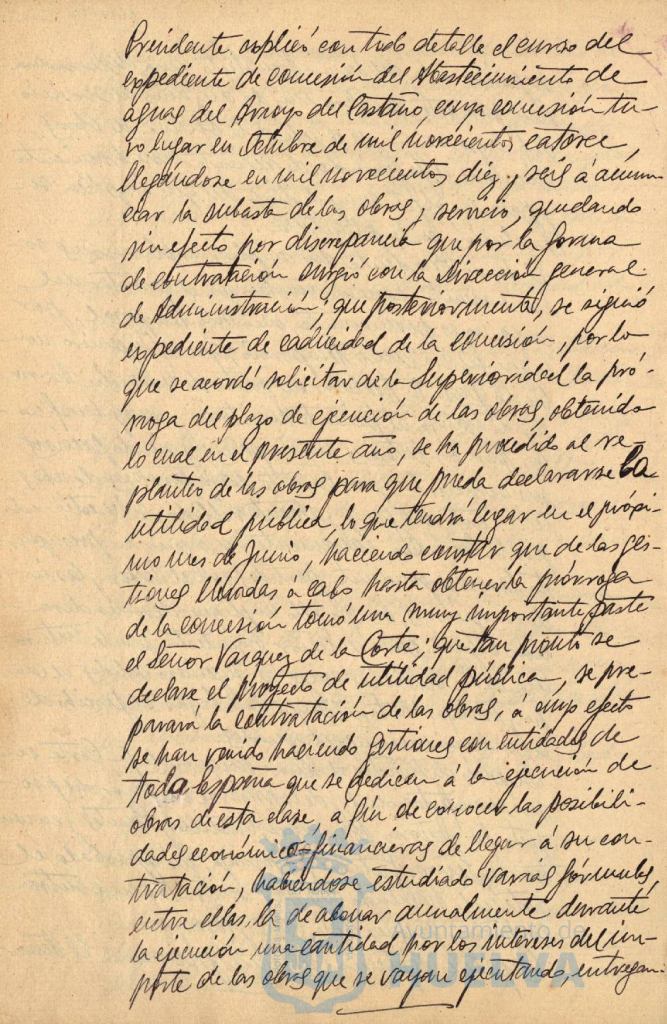 Presidente explicó con todo detalle el curso del
expediente de concesión del Abastecimiento de
aguas del Arroyo del Castaño, cuya concesión tu-
vo lugar en Octubre de mil novecientos catorce,
llegándose en mil novecientos diez y seis á anun-
ciar la subasta de las obras y servicio, quedando
sin efecto por discrepancia que por la forma
de contratación surgió con la Dirección general
de Administración; que posteriormente, se siguió
expediente de caducidad de la concesión, por lo
que se acordó solicitar de la Superioridad la pró-
rroga del plazo de ejecución de las obras, obtenido
lo cual en el presente año, se ha procedido al re-
planteo de las obras para que pueda declararse la
utilidad pública, lo que tendrá lugar en el próxi-
mo mes de Junio, haciendo constar que de las ges-
tiones llevadas á cabo hasta obtener la prórroga
de la concesión tomó una muy importante parte
el Señor Vazquez de la Corte; que tan pronto se
declare el proyecto de utilidad pública, se pre-
parará la contratación de las obras, á cuyo efecto
se han venido haciendo gestiones con entidades de
toda España que se dedican á la ejecución de
obras de esta clase, á fin de conocer las posibili-
dades económico-financieras de llegar á su con-
tratación, habiéndose estudiado varias fórmulas,
entre ellas, la de abonar anualmente durante
la ejecución una cantidad por los intereses del im-
porte de las obras que se vayan ejecutando, entregan-
Ayuntamiento de
HUELVA